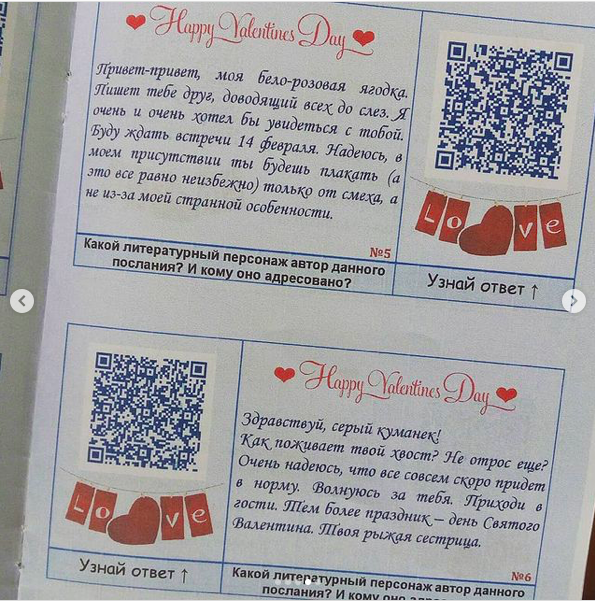 Happy Valentines Day
Привет-привет, моя бело-розовая ягодка.
Пишет тебе друг, доводящий всех до слез. Я
очень и очень хотел бы увидеться с тобой.
Буду ждать встречи 14 февраля. Надеюсь, в
моем присутствии ты будешь плакать (а
это все равно неизбежно) только от смеха, а
не из-за моей странной особенности.
№5
Какой литературный персонаж автор данного
послания? И кому оно адресовано?
Love
Узнай ответ ↑
Love
Узнай ответ ↑
Happy Valentines Day
Здравствуй, серый куманек!
Как поживает твой хвост? Не отрос еще?
Очень надеюсь, что все совсем скоро придет
в норму. Волнуюсь за тебя. Приходи в
гости. Тем более праздник – день Святого
Валентина. Твоя рыжая сестрица.
№6
Какой литературный персонаж автор данного
послания? И кому оно